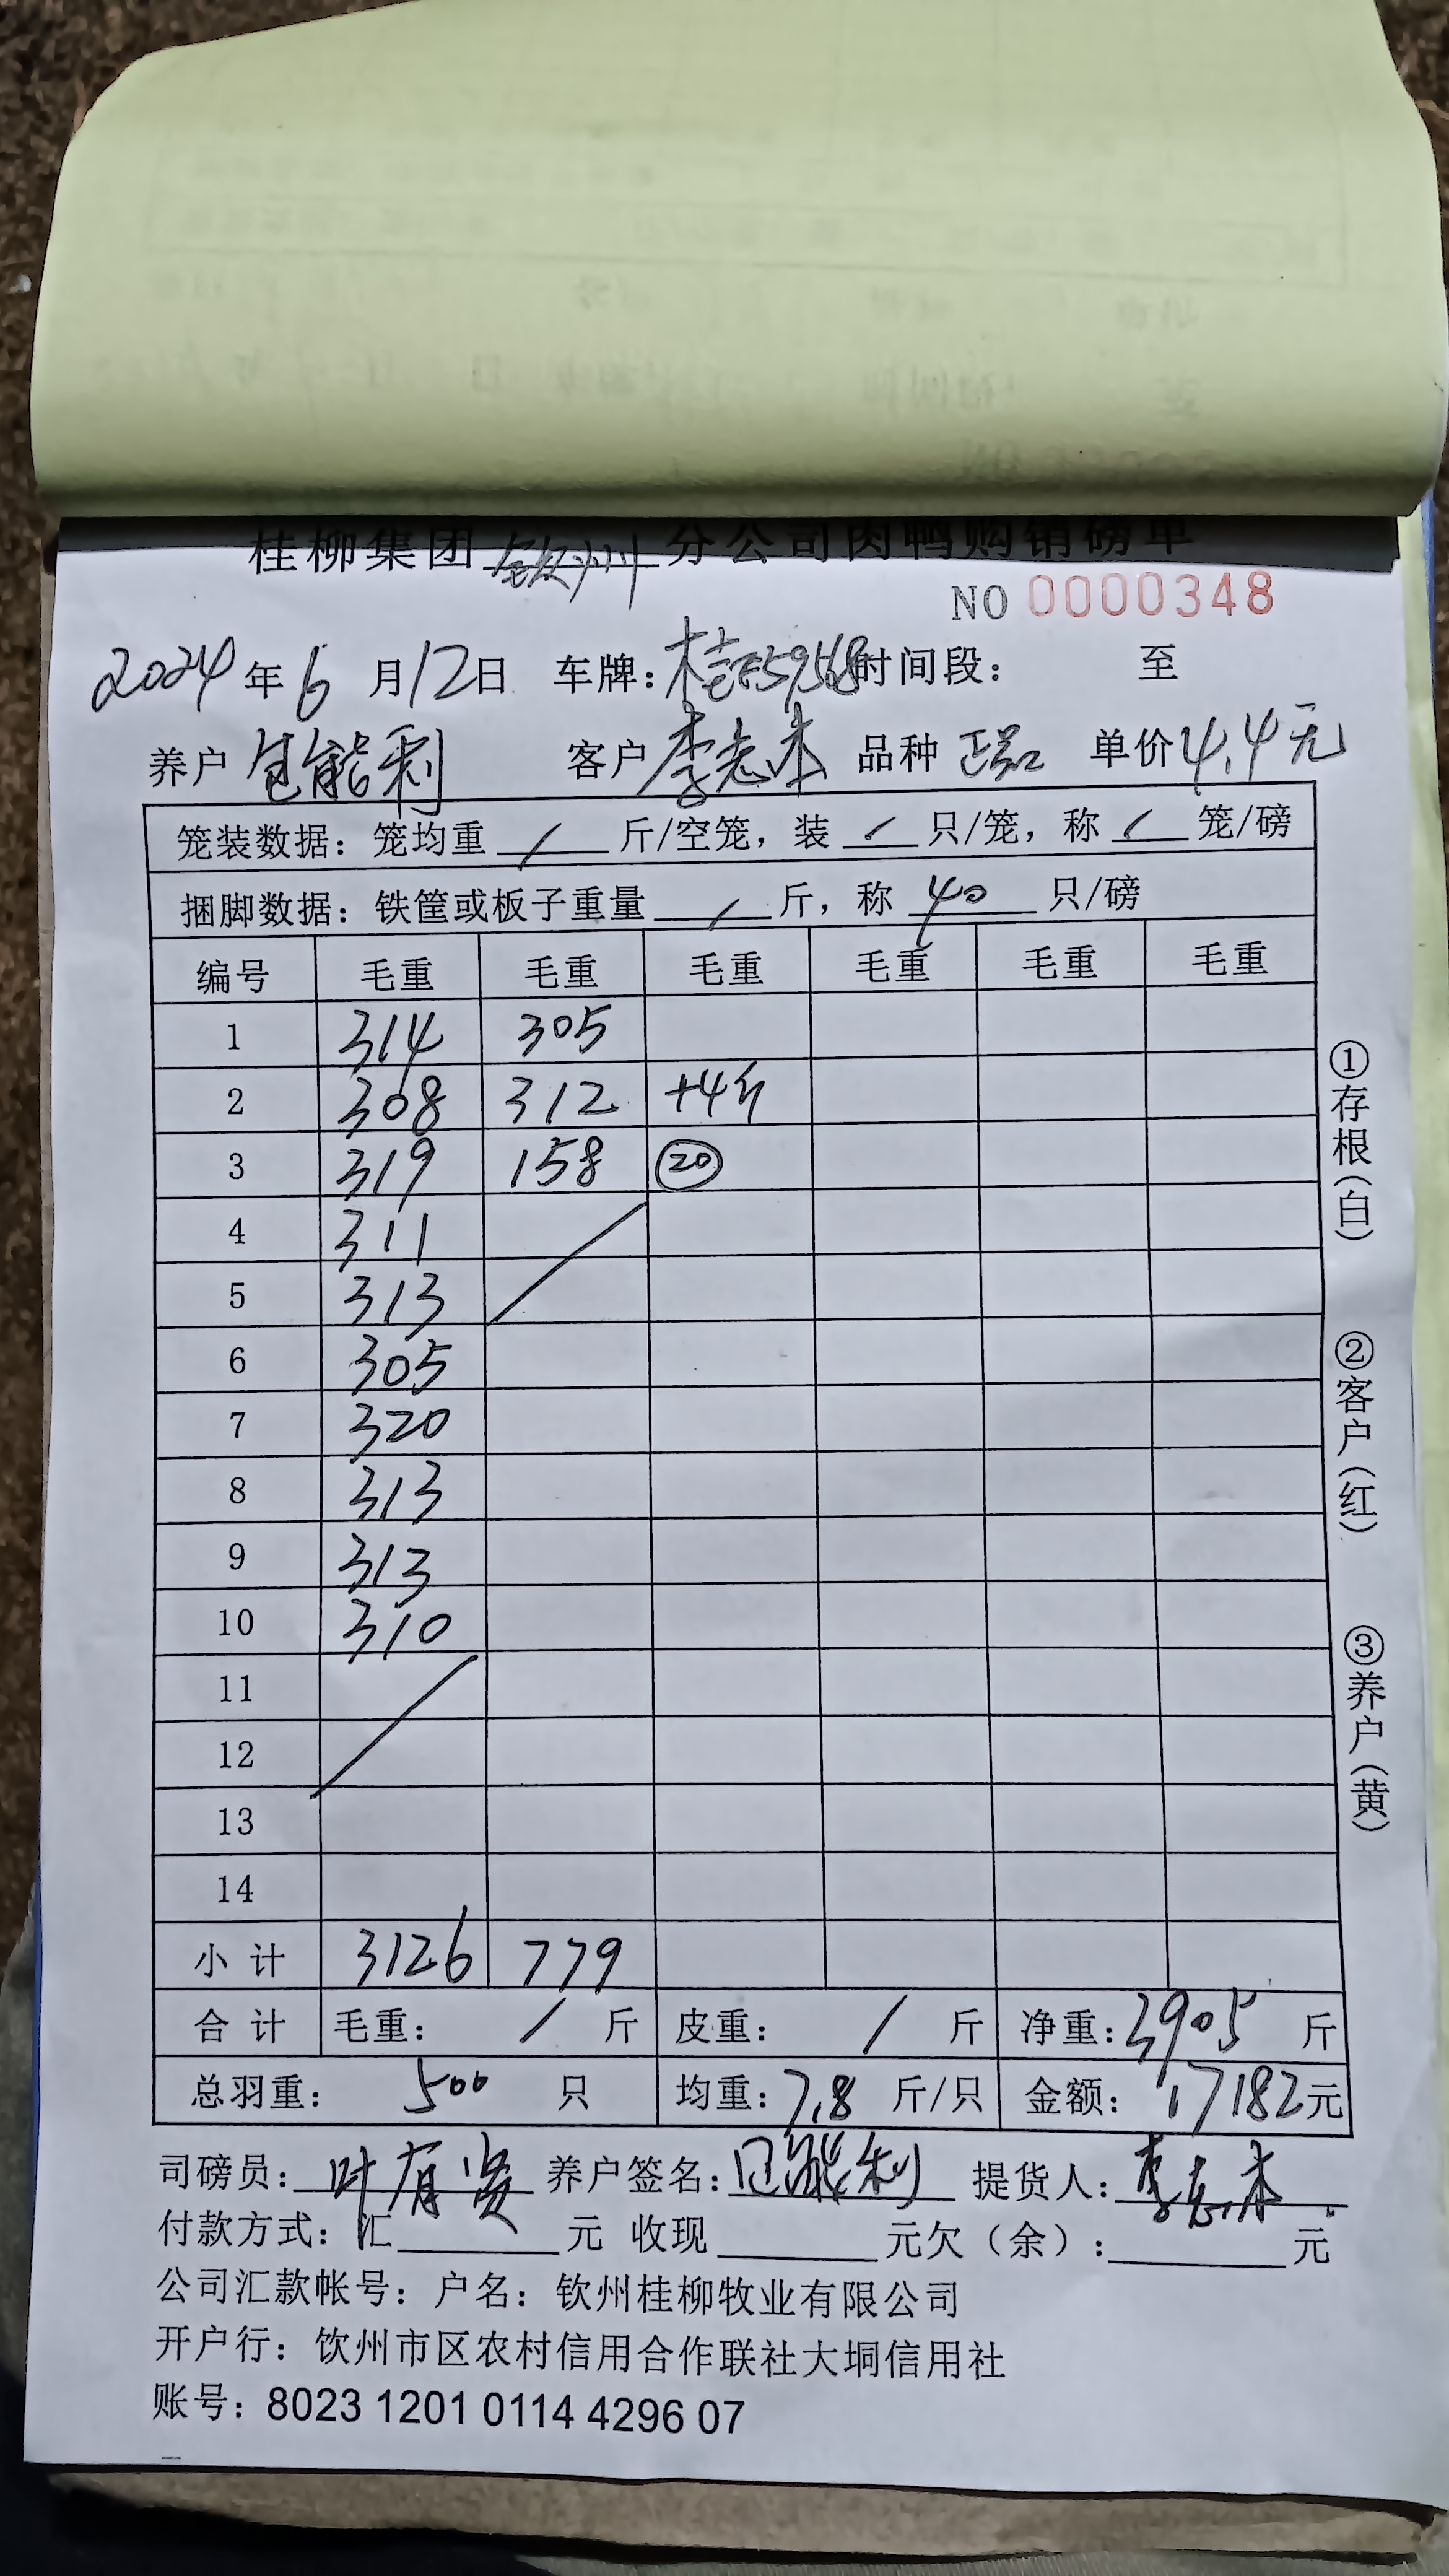 桂柳集团 钦州 分公司肉鸭购销磅单
NO 0000348
2024 年 6 月 12 日 车牌: 时间段: 至
养户 包能利 客户 李志本 品种 正品 单价 4.4元
笼装数据: 笼均重 / 斤/空笼, 装 / 只/笼, 称 / 笼/磅
捆脚数据: 铁筐或板子重量 / 斤, 称 40 只/磅
编号 毛重 毛重 毛重 毛重 毛重 毛重
1 314 305
2 308 312 +4斤
3 319 158 ⑳
4 311
5 313
6 305
7 320
8 313
9 313
10 310
11
12
13
14
小计 3126 779
合计 毛重: / 斤 皮重: / 斤 净重: 3905 斤
总羽重: 500 只 均重: 7.8 斤/只 金额: 17182元
司磅员: 叶有贤 养户签名: 包能利 提货人: 李志本
付款方式: 汇 元 收现 元欠(余): 元
公司汇款帐号: 户名: 钦州桂柳牧业有限公司
开户行: 钦州市区农村信用合作联社大垌信用社
账号: 8023 1201 0114 4296 07
①存根(白)
②客户(红)
③养户(黄)